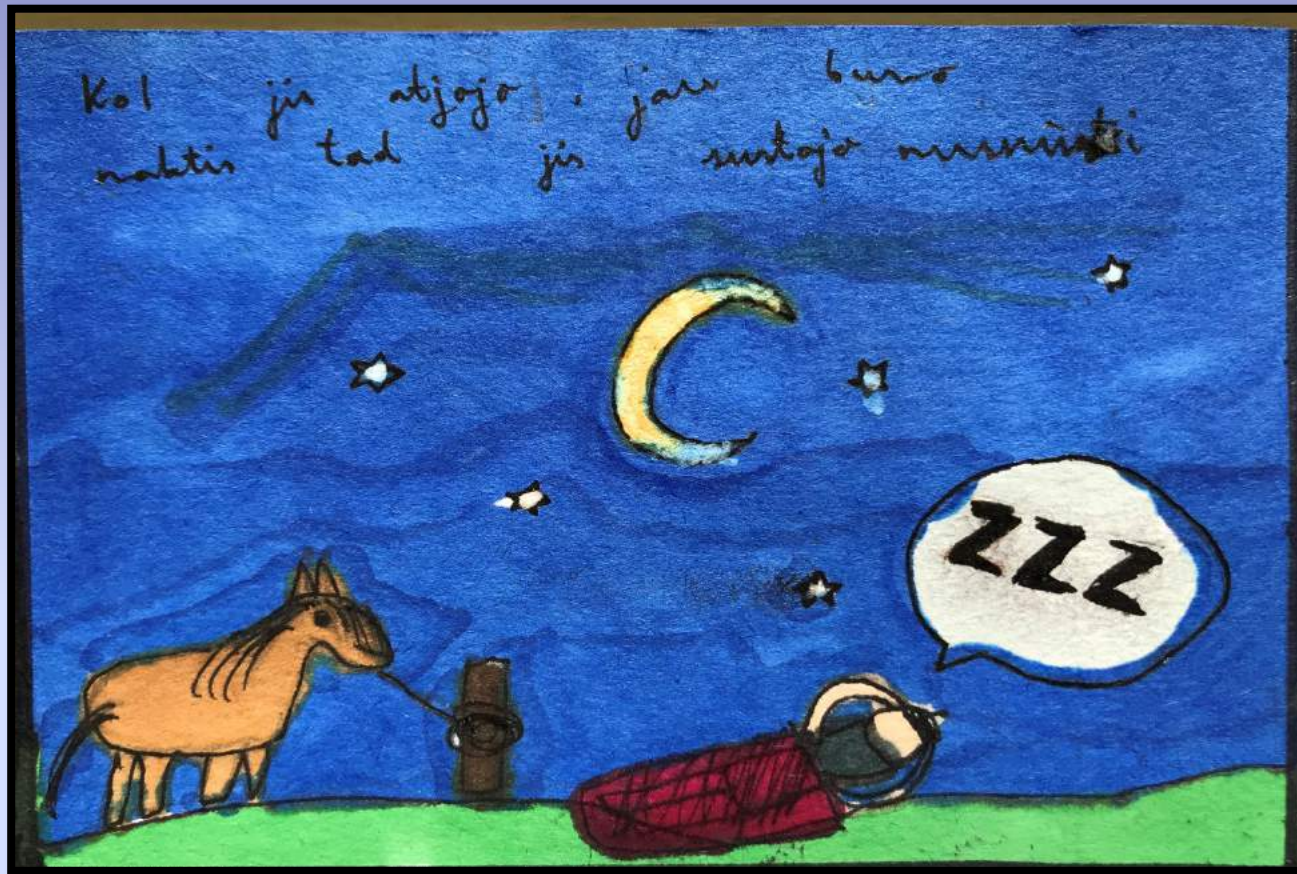 Kol jis atjojo, jau buvo
naktis tad jis sustojo nusnūsti
ZZZ